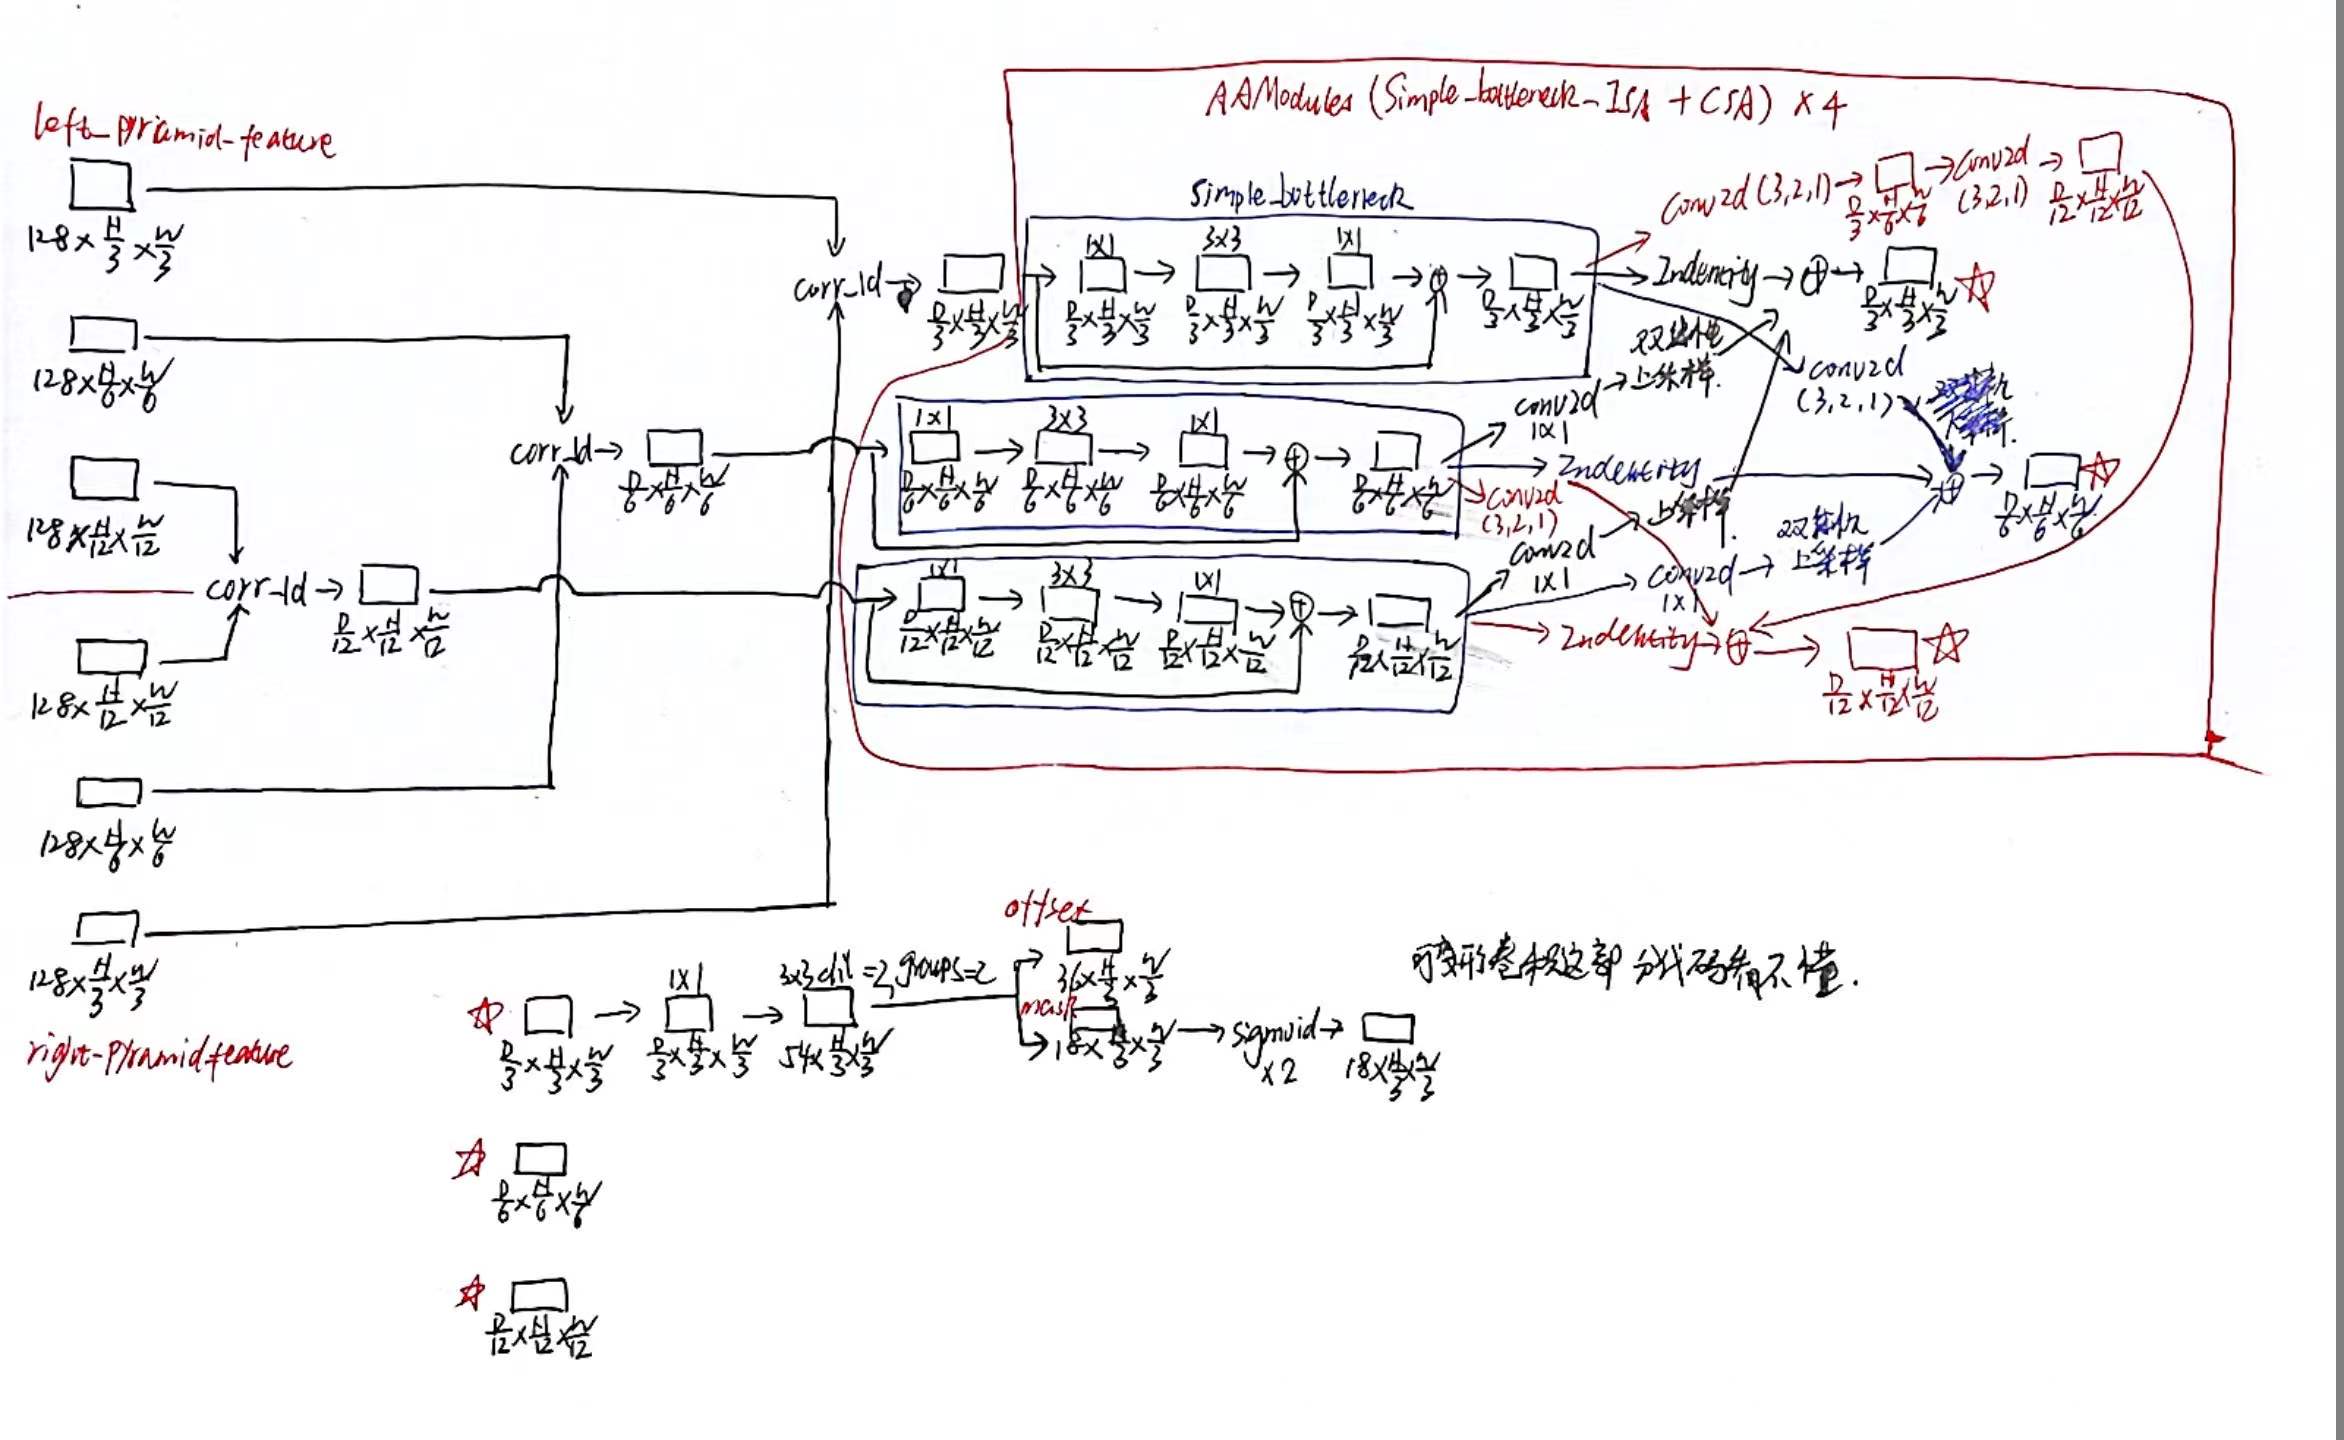 AAModules (Simple_bottleneck-ISA + CSA) × 4
left_pyriamid-feature
128 × H/3 × W/3
128 × H/6 × W/6
128 × H/12 × W/12
128 × H/12 × W/12
128 × H/6 × W/6
128 × H/3 × W/3
right-pyramid feature
corr_1d
D/3 × H/3 × W/3
corr_1d
D/6 × H/6 × W/6
corr_1d
D/12 × H/12 × W/12
Simple_bottleneck
1×1 3×3 1×1
D/3 × H/3 × W/3 D/3 × H/3 × W/3 D/3 × H/3 × W/3 D/3 × H/3 × W/3
1×1 3×3 1×1
D/6 × H/6 × W/6 D/6 × H/6 × W/6 D/6 × H/6 × W/6 D/6 × H/6 × W/6
1×1 3×3 1×1
D/12 × H/12 × W/12 D/12 × H/12 × W/12 D/12 × H/12 × W/12 D/12 × H/12 × W/12
Conv2d (3,2,1) → D/3 × H/6 × W/6 → Conv2d (3,2,1) → D/12 × H/12 × W/12
Indentity → ⊕ → D/3 × H/3 × W/3 ☆
双线性
上采样.
conv2d
(3,2,1)
conv2d
1×1
Indentity
⊕ → D/6 × H/6 × W/6 ☆
conv2d
(3,2,1)
conv2d
1×1
上采样.
conv2d
1×1
双线性
上采样
Indentity → ⊕ → D/12 × H/12 × W/12 ☆
☆ D/3 × H/3 × W/3
1×1
D/3 × H/3 × W/3
3×3 dil=2, groups=2
54 × H/3 × W/3
offset
36 × H/3 × W/3
mask
18 × H/3 × W/3 → sigmoid ×2 → 18 × H/3 × W/3
可变形卷积这部分代码看不懂.
☆ D/6 × H/6 × W/6
☆ D/12 × H/12 × W/12